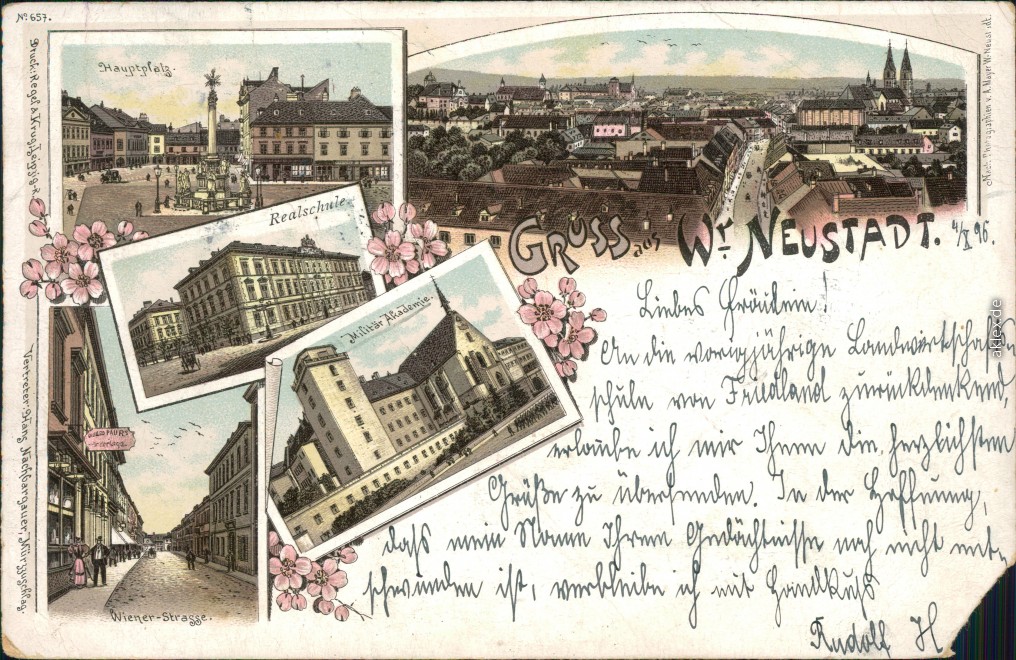 No 657.
Druck: Regel & Krug, Leipzig-R.
Hauptplatz.
Nach Photographien v. A. Mayer W. Neustadt.
Realschule.
GRUSS aus Wr. NEUSTADT.
4/X 96.
Militär Akademie.
Vertreter: Hans Nachbargauer, Mürzzuschlag.
Wiener-Strasse.
Liebes Fräulein!
An die vorigjährige Landwirtschafts
schule von Friedland zurückdenkend,
erlaube ich mir Ihnen die herzlichsten
Grüße zu übersenden. In der Hoffnung,
dass mein Name Ihrem Gedächtnisse noch nicht ent-
schwunden ist, verbleibe ich mit Handkuß
Rudolf H
aklex.de